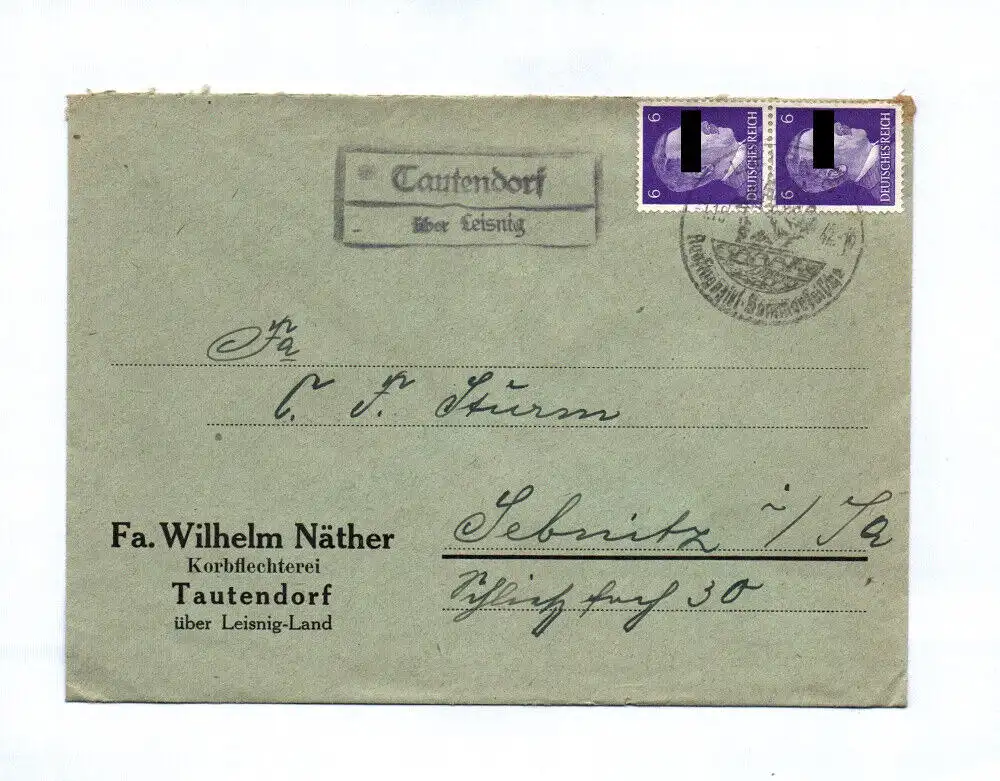 6 6 DEUTSCHES REICH
6 6 DEUTSCHES REICH
Tautendorf
über Leisnig
Fa
C. F. Sturm
Sebnitz i/Sa
Schließfach 30
Fa. Wilhelm Näther
Korbflechterei
Tautendorf
über Leisnig-Land